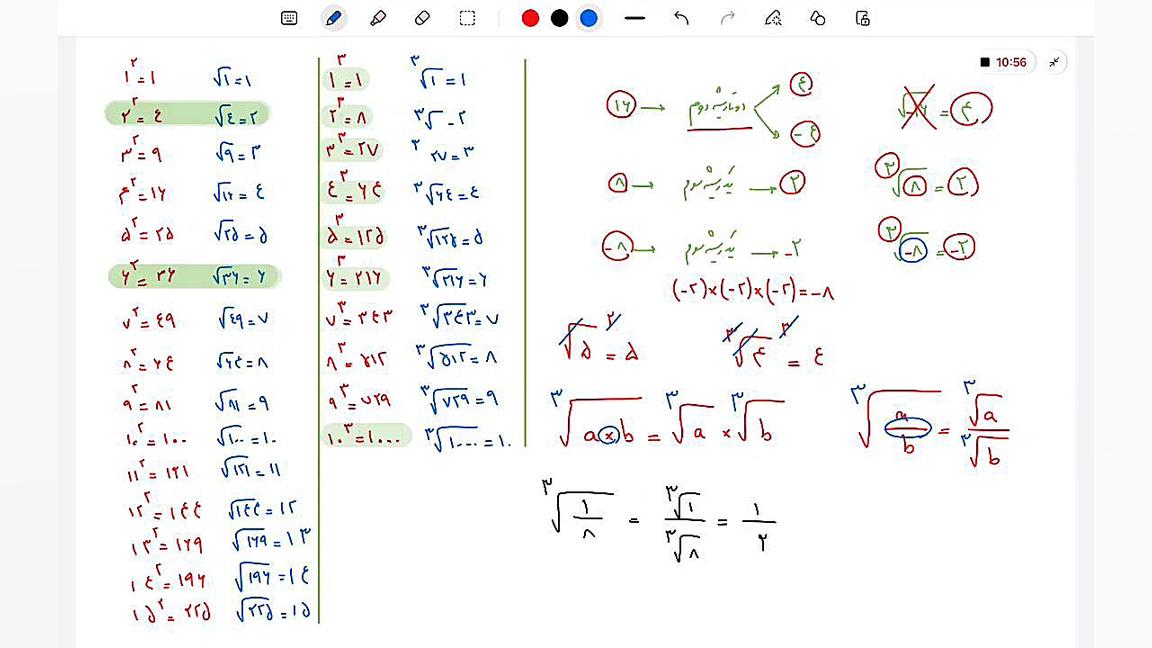 10:56
۱² = ۱
√۱ = ۱
۲² = ۴
√۴ = ۲
۳² = ۹
√۹ = ۳
۴² = ۱۶
√۱۶ = ۴
۵² = ۲۵
√۲۵ = ۵
۶² = ۳۶
√۳۶ = ۶
۷² = ۴۹
√۴۹ = ۷
۸² = ۶۴
√۶۴ = ۸
۹² = ۸۱
√۸۱ = ۹
۱۰² = ۱۰۰
√۱۰۰ = ۱۰
۱۱² = ۱۲۱
√۱۲۱ = ۱۱
۱۲² = ۱۴۴
√۱۴۴ = ۱۲
۱۳² = ۱۶۹
√۱۶۹ = ۱۳
۱۴² = ۱۹۶
√۱۹۶ = ۱۴
۱۵² = ۲۲۵
√۲۲۵ = ۱۵
۱³ = ۱
³√۱ = ۱
۲³ = ۸
³√ - ۲
۳³ = ۲۷
³ ۲۷ = ۳
۴³ = ۶۴
³√۶۴ = ۴
۵³ = ۱۲۵
³√۱۲۵ = ۵
۶³ = ۲۱۶
³√۲۱۶ = ۶
۷³ = ۳۴۳
³√۳۴۳ = ۷
۸³ = ۵۱۲
³√۵۱۲ = ۸
۹³ = ۷۲۹
³√۷۲۹ = ۹
۱۰³ = ۱۰۰۰
³√۱۰۰۰ = ۱۰
۱۶ → دو تا ریشه دوم → ۴
→ -۴
√-۱۶ = ۴
۸ → یک ریشه سوم → ۲
³√۸ = ۲
-۸ → یک ریشه سوم → -۲
³√-۸ = -۲
(-۲)×(-۲)×(-۲) = -۸
√۵² = ۵
³√۴³ = ۴
³√a×b = ³√a × ³√b
³√a/b = ³√a / ³√b
³√۱/۸ = ³√۱ / ³√۸ = ۱/۲